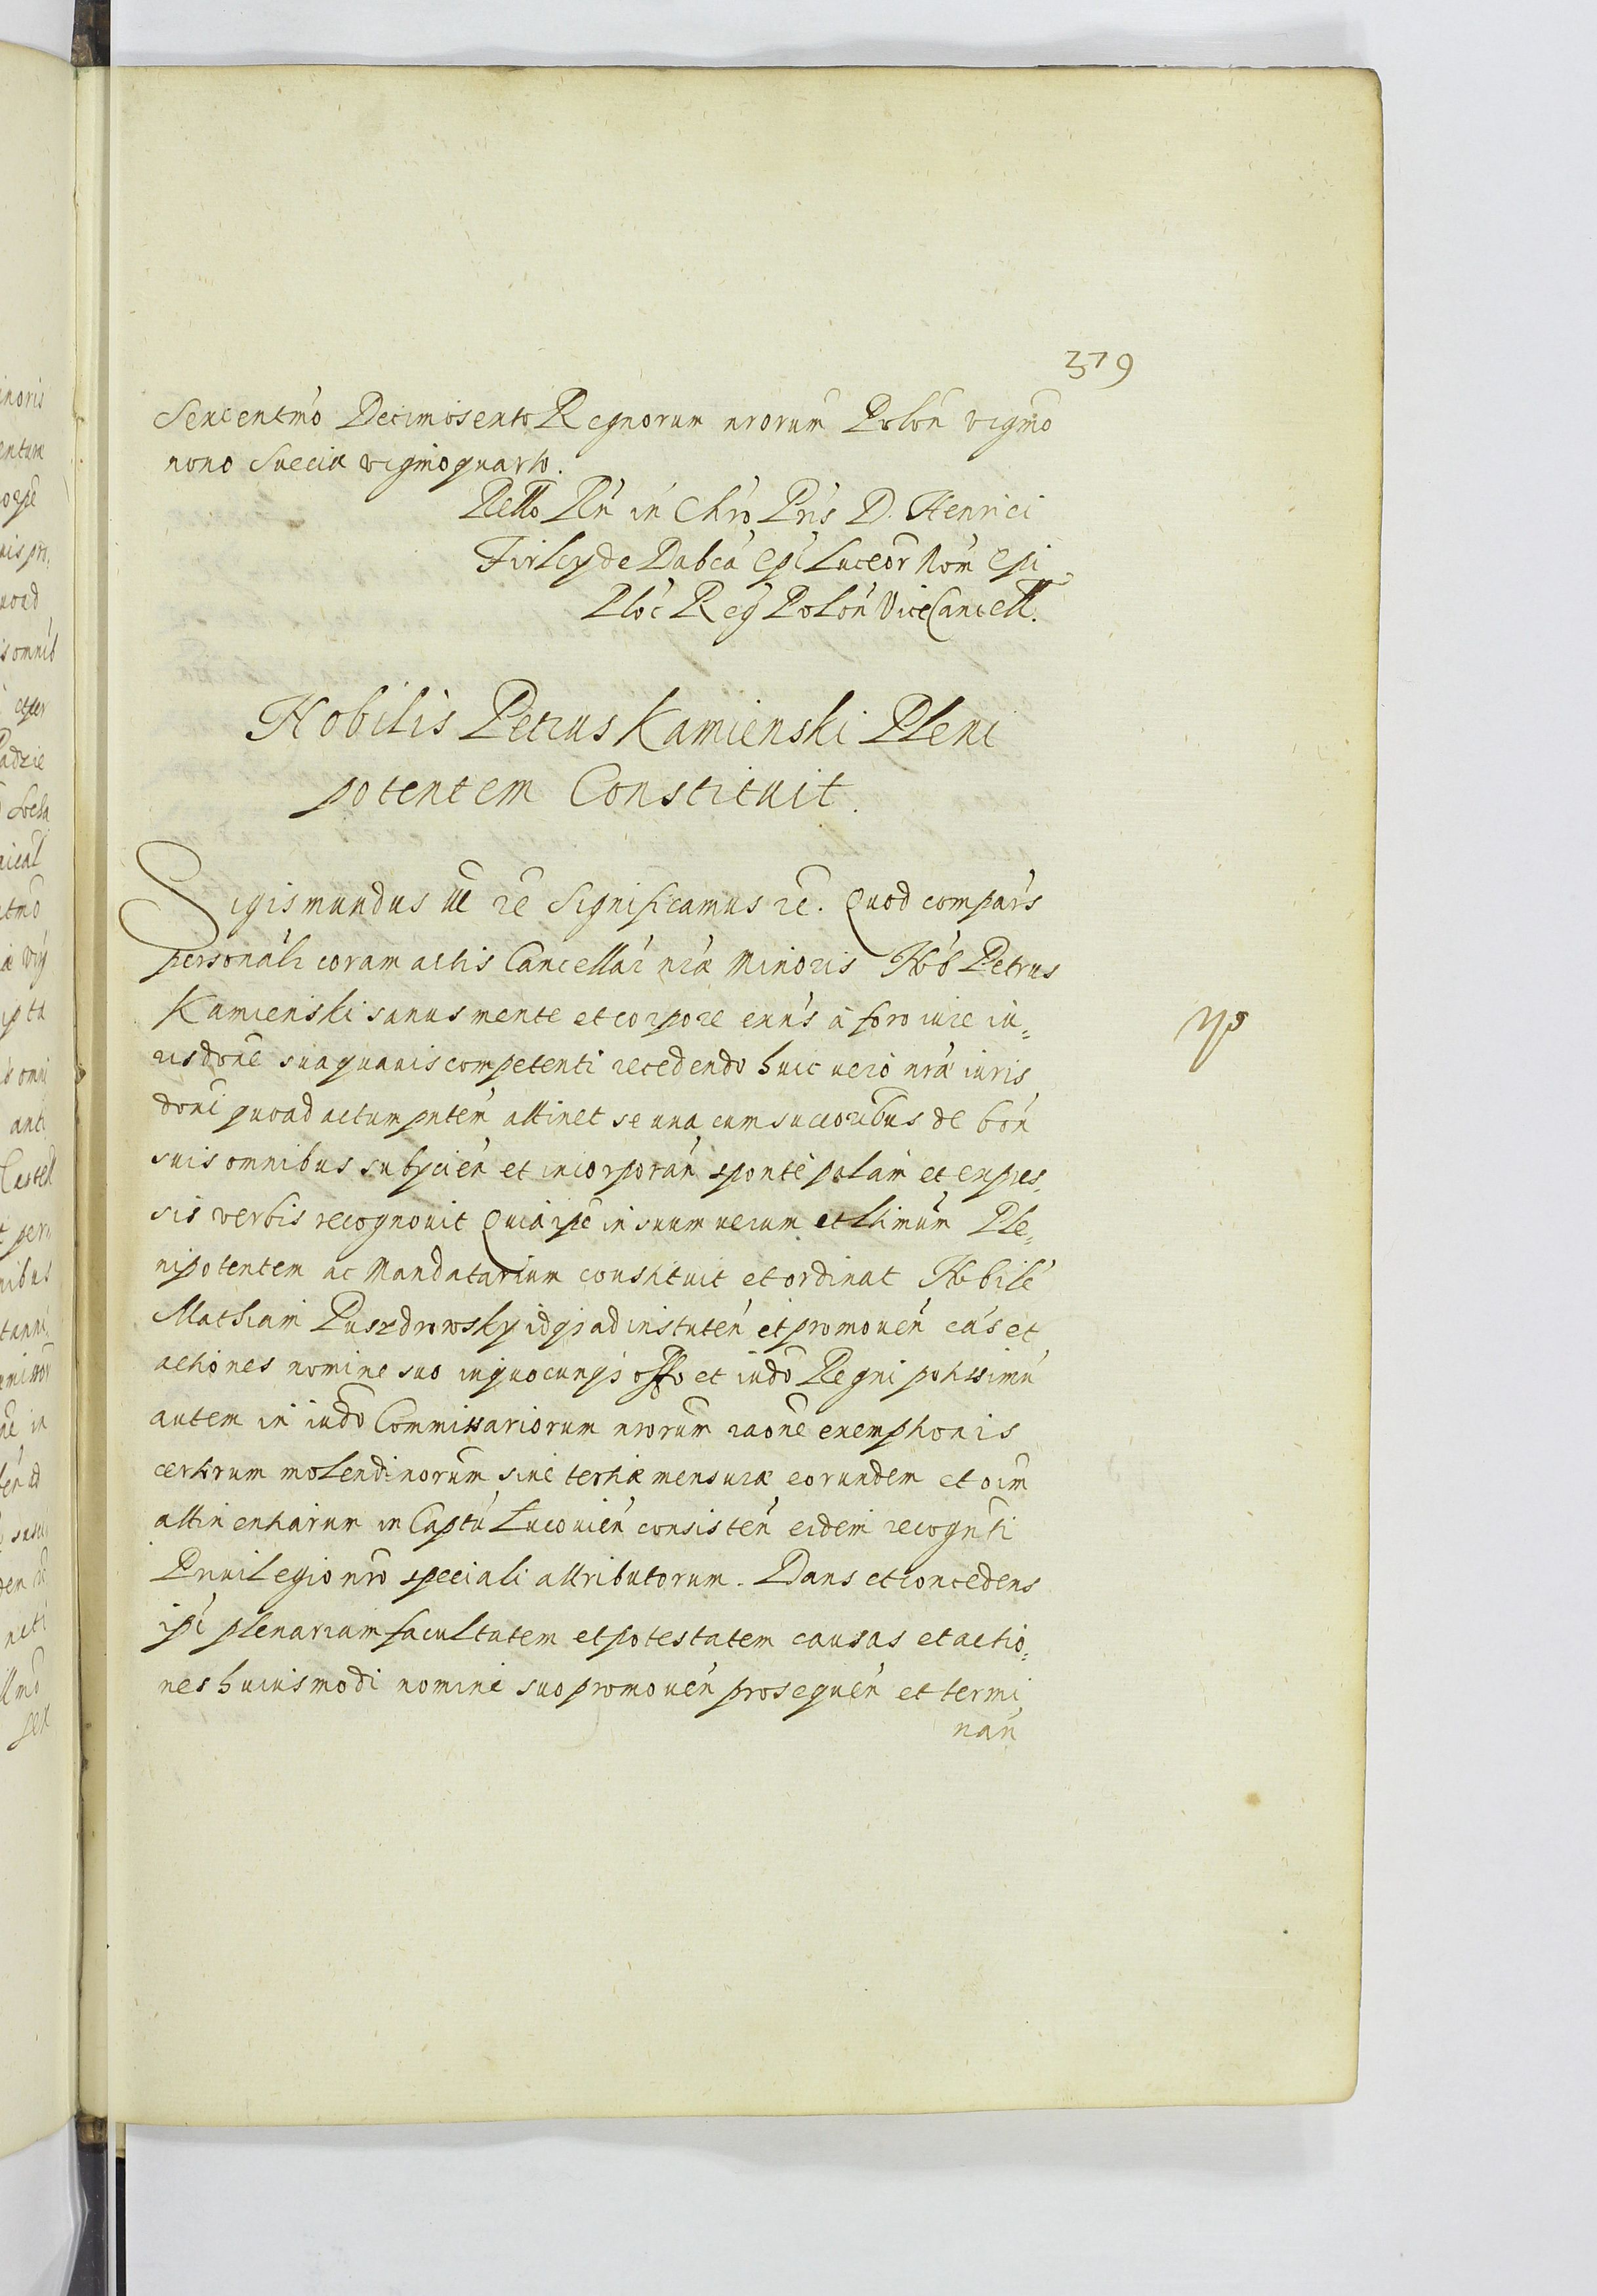 379
Sexcentmo Decimosexto Regnorum nrorum Polon vigmo
nono Sueciæ vigmoquarto.
Rello Rn in Chro Pris D. Henrici
Firley de Dabca Epi Luceor Nom Epi
Ploc Reg Polon ViceCancell.
Nobilis Petrus Kamienski Pleni
potentem Constituit.
Sigismundus III rc Significamus rc. Quod compars
personalr coram actis Cancellar nræ Minoris Nob Petrus
Kamienski sanus mente et corpore exns à foro iure iu=
risdone sua quauis competenti recedendo huic vero nræ iuris
doni quoad actum pntem attinet se una cum succoribus de bon
suis omnibus subycien et incorporan sponte palam et expres
sis verbis recognouit Quia ipe in suum verum et ltimum Ple=
nipotentem ac Mandatarium constituit et ordinat Nobile
Mathiam Puszdrowsky idqz ad instuten et promouen cas et
actiones nomine suo in quocunqz offo et iudo Regni potissimu
autem in iudo Commissariorum nrorum raone exemptionis
certorum molendinorum siue tertiæ mensuræ eorundem et oim
attinentiarum in Captu Lucouien consisten eidem recognti
Priuilegio nro speciali attributorum. Dans et concedens
ipi plenariam facultatem et potestatem causas et actio=
nes huiusmodi nomine suo promouen prosequen et termi
nan